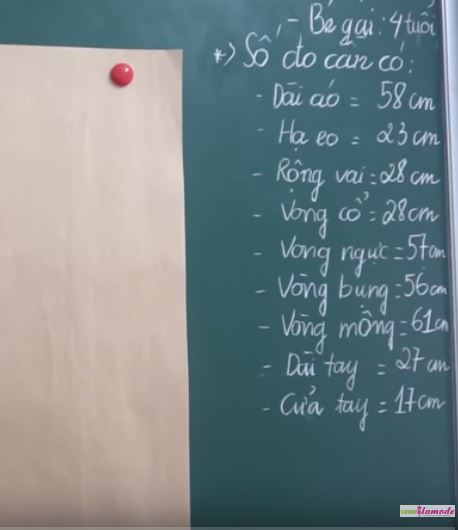 - Bé gái: 4 tuổi
*) Số đo cần có:
- Dài áo = 58 cm
- Hạ eo = 23 cm
- Rộng vai = 28 cm
- Vòng cổ = 28 cm
- Vòng ngực = 57 cm
- Vòng bụng = 56 cm
- Vòng mông = 61 cm
- Dài tay = 27 cm
- Cửa tay = 17 cm